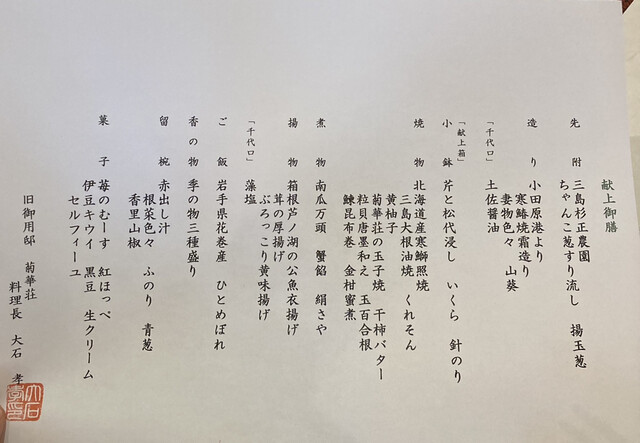 献上御膳
先附 三島杉正農園
ちゃんこ葱すり流し 揚玉葱
造り 小田原港より
寒鰆焼霜造り
妻物色々 山葵
「千代口」 土佐醤油
小鉢 芹と松代浸し いくら 針のり
「献上箱」
焼物 北海道産寒鰤照焼
三島大根油焼 くれそん
黄柚子
菊華荘の玉子焼 干柿バター
粒貝唐墨和え 玉百合根
鰊昆布巻 金柑蜜煮
煮物 南瓜万頭 蟹餡 絹さや
揚物 箱根芦ノ湖の公魚衣揚げ
茸の厚揚げ
ぶろっこり黄味揚げ
「千代口」 藻塩
ご飯 岩手県花巻産 ひとめぼれ
香の物 季の物三種盛り
留椀 赤出し汁
根菜色々 ふのり 青葱
香里山椒
菓子 苺のむーす 紅ほっぺ
伊豆キウイ 黒豆 生クリーム
セルフィーユ
旧御用邸 菊華荘
料理長 大石 孝